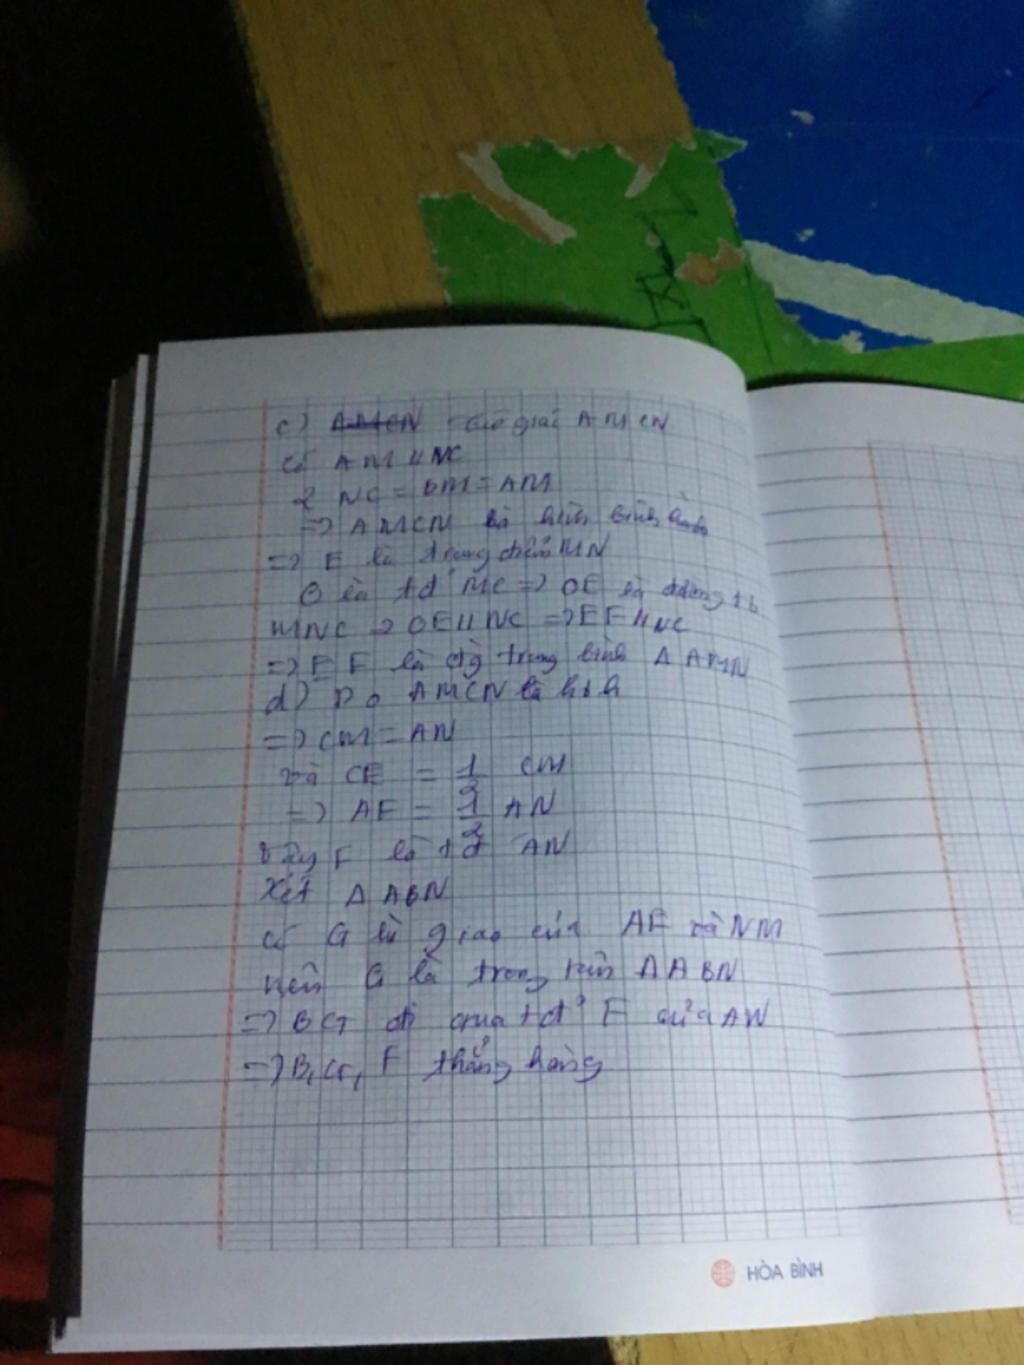 c) AMCN tứ giác AMCN
có AM // NC
& NC = BM = AM
=> AMCN là hình bình hành
=> E là trung điểm MN
O là tđ MC => OE là đường tb
MNC => OE // NC => EF // NC
=> EF là đg trung bình Δ AMN
d) Do AMCN là hbh
=> CM = AN
và CE = 1/3 CM
=> AF = 1/2 AN
Vậy F là tđ AN
Xét Δ ABN
có G là giao của AE và NM
nên G là trọng tâm Δ ABN
=> BG đi qua tđ F của AN
=> B, G, F thẳng hàng
HÒA BÌNH